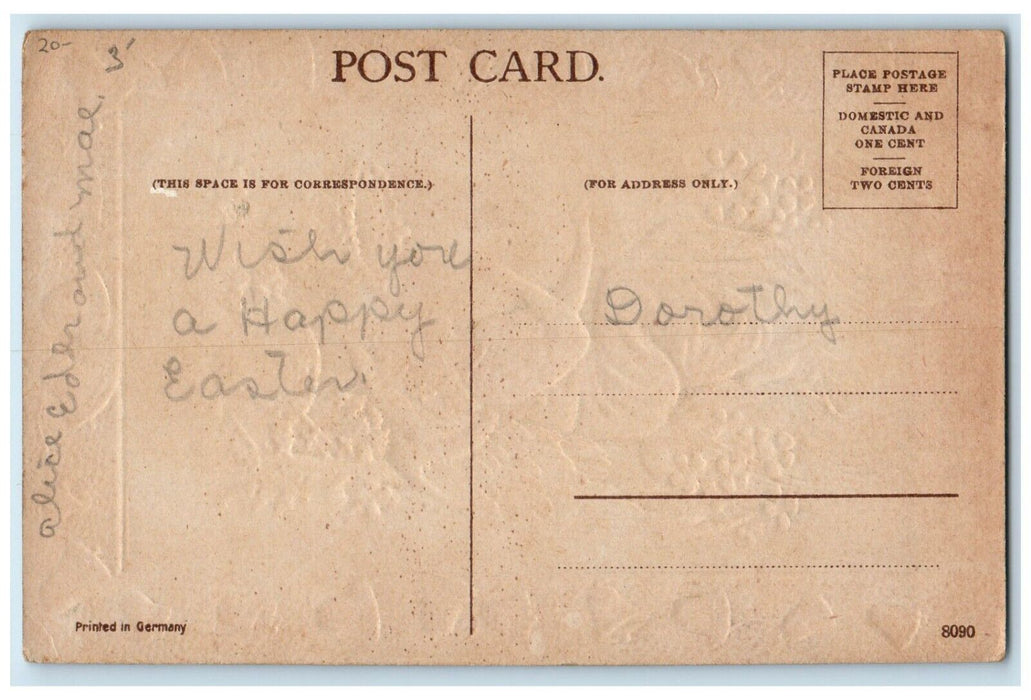 20-
3'
POST CARD.
PLACE POSTAGE
STAMP HERE
DOMESTIC AND
CANADA
ONE CENT
FOREIGN
TWO CENTS
(THIS SPACE IS FOR CORRESPONDENCE.)
(FOR ADDRESS ONLY.)
Wish you
a Happy
Easter.
Alice Edder and mae.
Dorothy
Printed in Germany
8090